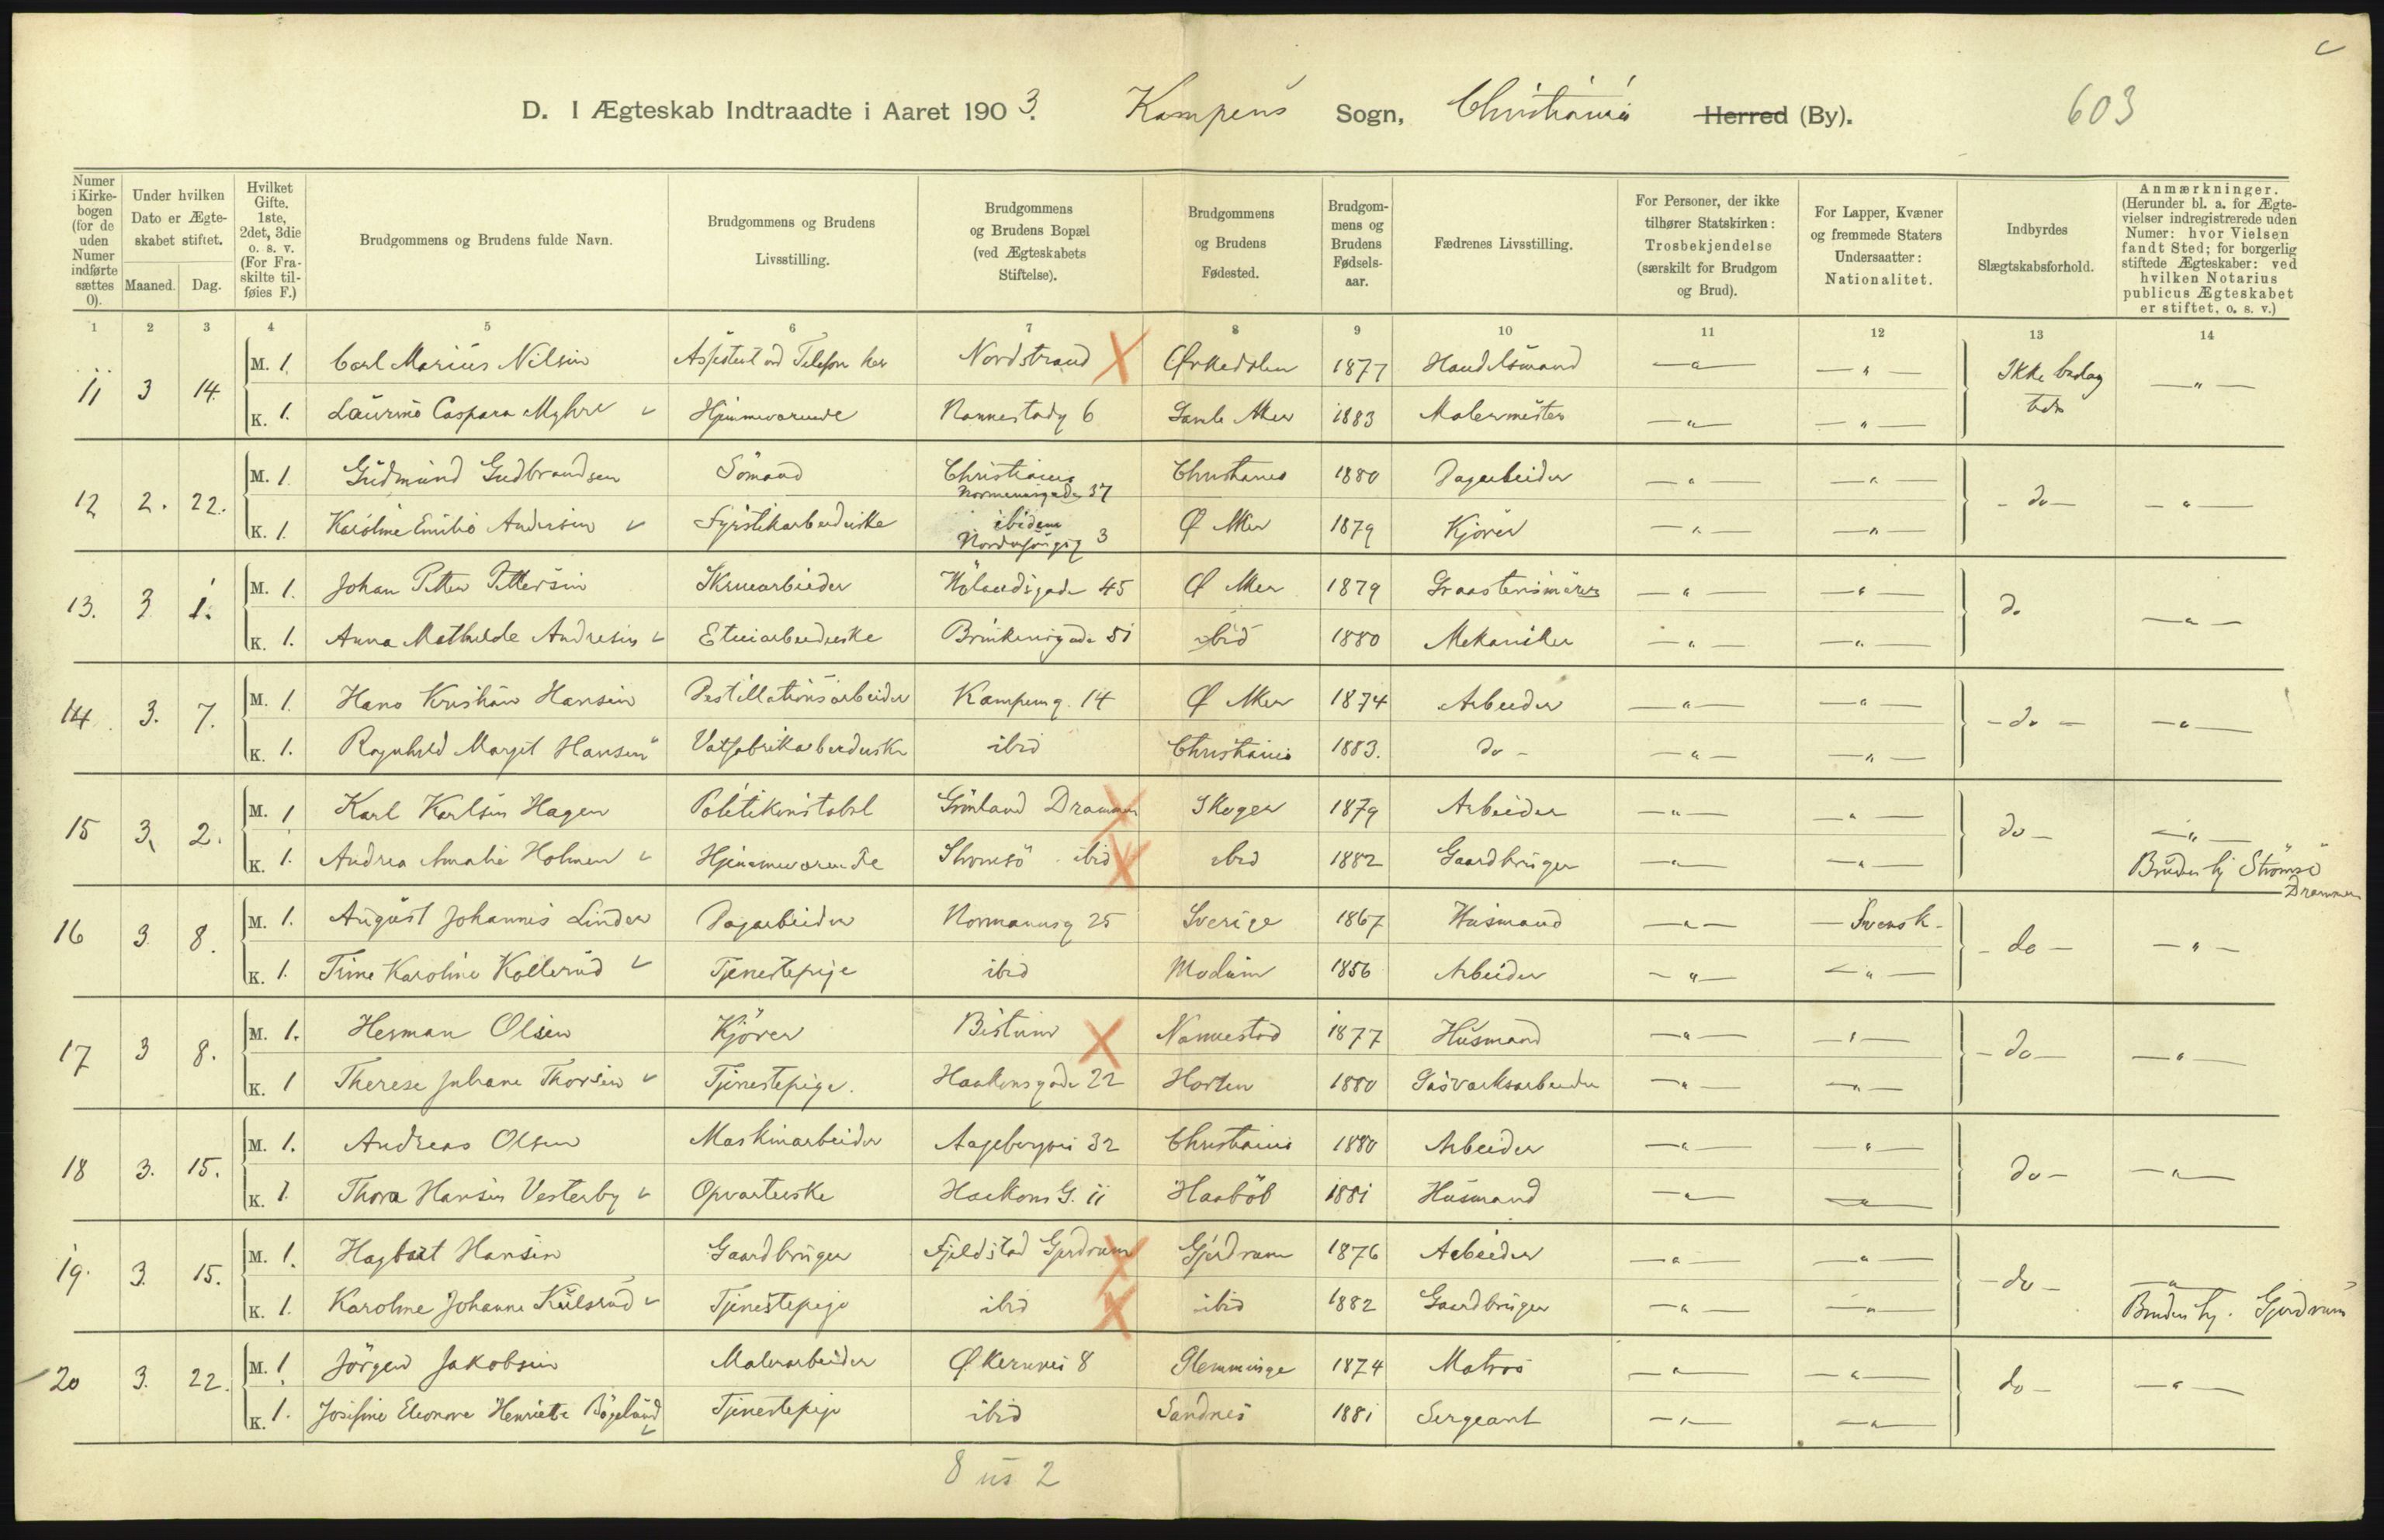 D. I Ægteskab Indtraadte i Aaret 1903. Kampens Sogn, Christiania Herred (By). 603
Numer i Kirkebogen (for de uden Numer indførte sættes 0).
Under hvilken Dato er Ægteskabet stiftet.
Maaned. Dag.
Hvilket Gifte. 1ste, 2det, 3die o. s. v. (For Fraskilte tilføies F.)
Brudgommens og Brudens fulde Navn.
Brudgommens og Brudens Livsstilling.
Brudgommens og Brudens Bopæl (ved Ægteskabets Stiftelse).
Brudgommens og Brudens Fødested.
Brudgommens og Brudens Fødselsaar.
Fædrenes Livsstilling.
For Personer, der ikke tilhører Statskirken: Trosbekjendelse (særskilt for Brudgom og Brud).
For Lapper, Kvæner og fremmede Staters Undersaatter: Nationalitet.
Indbyrdes Slægtskabsforhold.
Anmærkninger. (Herunder bl. a. for Ægtevielser indregistrerede uden Numer: hvor Vielsen fandt Sted; for borgerlig stiftede Ægteskaber: ved hvilken Notarius publicus Ægteskabet er stiftet, o. s. v.)
1 2 3 4 5 6 7 8 9 10 11 12 13 14
11 3 14 M. 1. Carl Marius Nilsen Assistent ved Telefon Nordstrand Ørkedalen 1877 Handelsmand —"— —"— Ikke —"—
K. 1. Caspara Myhre Hjemmeværende Nannestadg 6 Gamle Aker 1883 Malermester —"— —"—
12 2. 22. M. 1. Gudmund Gudbrandsen Sömand Christiania Normannsgade 37 Christiania 1880 Dagarbeider —"— —"— - do - —"—
K. 1. Karoline Emilie Andersen Fyrstikarbeiderske ibidem 3 Ø Aker 1879 Kjörer —"— —"—
13. 3 1. M. 1. Johan Petter Pettersen Skruearbeider Hölandsgade 45 Ø Aker 1879 —"— —"— do —"—
K. 1. Anna Mathilde Andresen Etuiarbeiderske Brinkensgade 51 ibid 1880 Mekaniker —"— —"—
14. 3. 7. M. 1. Hans Kristian Hansen Destillationsarbeider Kampeng. 14 Ø Aker 1874 Arbeider —"— —"— - do - —"—
K. 1. Ragnhild Margit Hansen Vatfabrikarbeiderske ibid Christiania 1883. do - —"— —"—
15 3. 2. M. 1 Karl Karlsen Hagen Politikonstabel Grönland Drammen Skoger 1879 Arbeider —"— —"— do - —"—
K. 1. Andrea Amalie Holmen Hjemmeværende Strömsö ibid ibid 1882 Gaardbruger —"— —"— Brudens hj Strömsö Drammen
16 3. 8. M. 1. August Johannes Linder Dagarbeider Normannsg 25 Sverige 1867 Husmand —"— — Svensk - - do - —"—
K. 1. Trine Karoline Kollerud Tjenestepige ibid Modum 1856 Arbeider —"— —"—
17 3 8. M. 1. Herman Olsen Kjörer Nannestad 1877 Husmand —"— —"— - do - —"—
K. 1 Therese Juliane Thorsen Tjenestepige. Haakonsgade 22 Horten 1880 Gasværksarbeider —"— —"—
18 3. 15. M. 1. Andreas Olsen Maskinarbeider Aagebergvei 32 Christiania 1880 Arbeider —"— —"— do - —"—
K. 1. Thora Hansen Vesterby Opvarterske Haakons G. 11 Haaböl 1881 Husmand —"— —"—
19. 3. 15. M. 1. Hagbart Hansen Gaardbruger Fjeldstad Gjerdrum Gjerdrum 1876 Arbeider —"— —"— - do - —"—
K. 1. Karoline Johanne Kulsrud Tjenestepige ibid ibid 1882 Gaardbruger —"— —"— Brudens hj. Gjerdrum
20 3. 22. M. 1. Jörgen Jakobsen Malerarbeider Økernvei 8 Glemminge 1874 Matros —"— —"— do - —"—
K. 1. Josefine Eleonore Henriette Bögelund Tjenestepige ibid Sandnes 1881 Sergeant —"— —"—
8 us 2